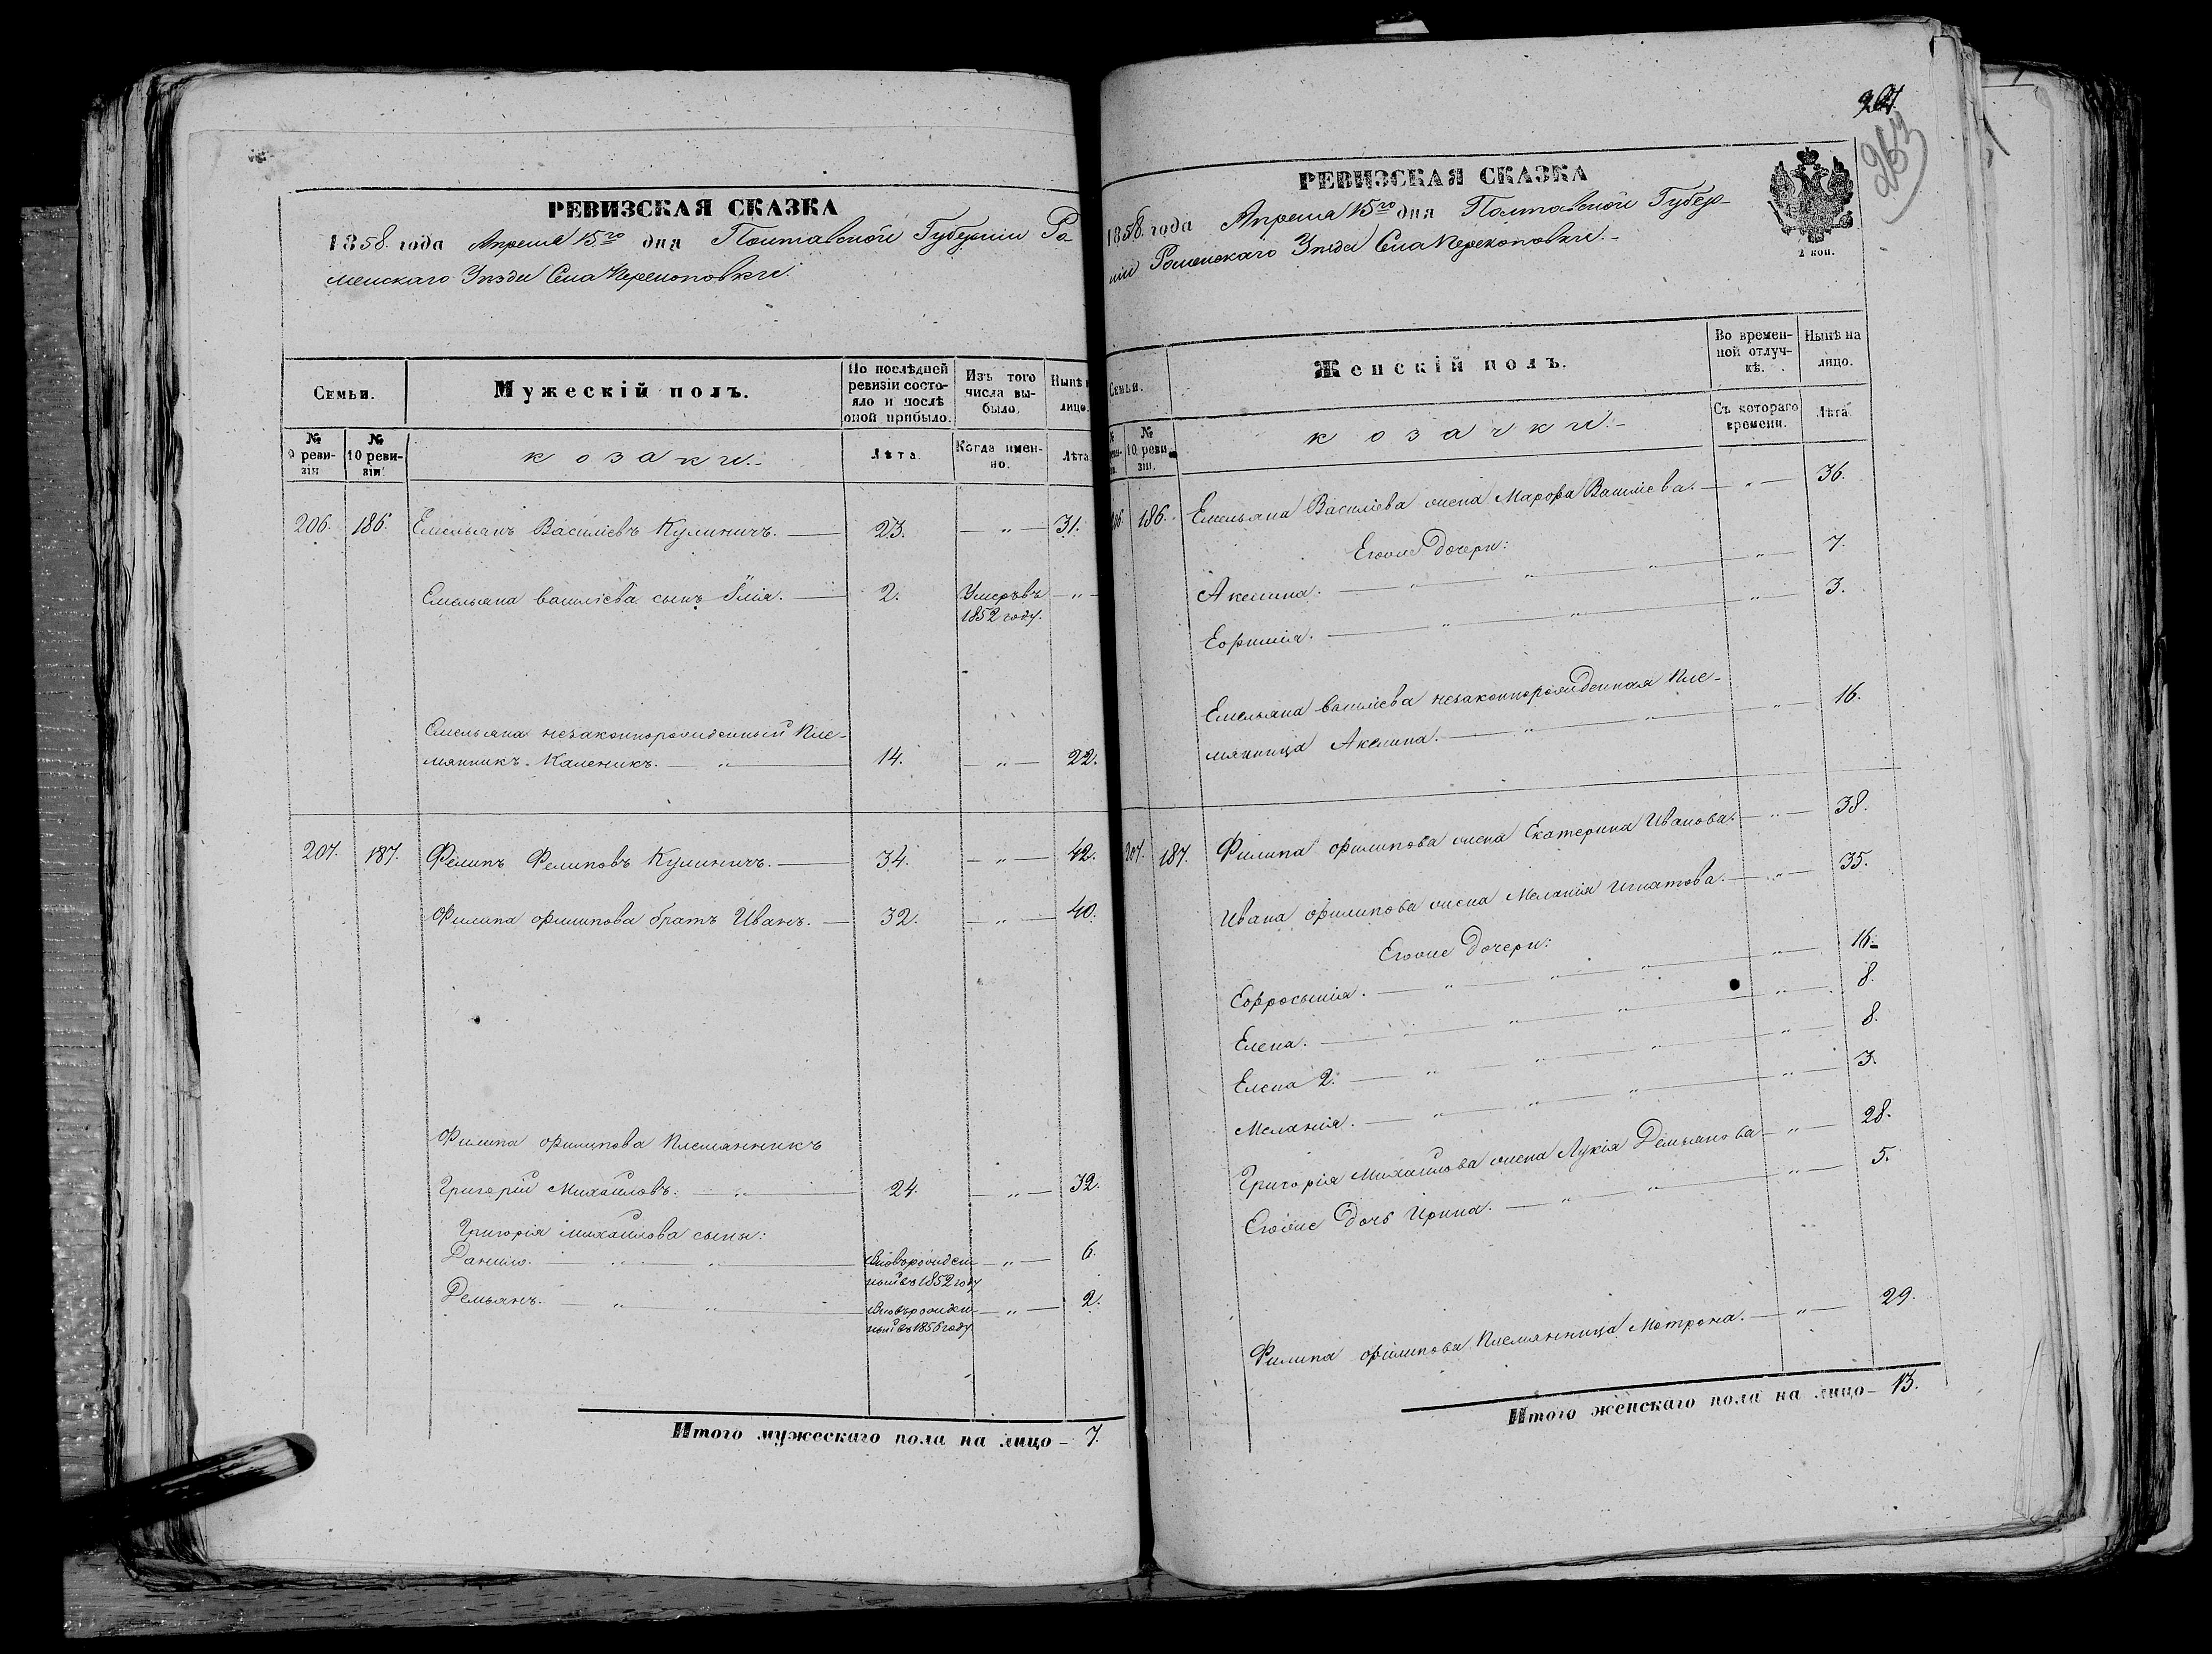 РЕВИЗСКАЯ СКАЗКА
1858 года Апреля 15го дня Полтавской Губерніи Ро-
менскаго Уѣзда Села Перекоповки.
Семьи.
Мужескій полъ.
По послѣдней ревизіи состояло и послѣ оной прибыло.
Изъ того числа выбыло.
Нынѣ
лицо.
№ 9 ревизіи
№ 10 ревизіи.
козаки.
Лѣта.
Когда именно.
Лѣта
206. 186. Емельянъ Василіевъ Кулиничъ. 23. — „ — 31.
Емельяна василіева сынъ Илія. 2. Умеръ въ — „ —
1852 году.
Емельяна незаконнорожденный Пле-
мянникъ Каленикъ. — „ — 14. — „ — 22.
207. 187. Фелипъ Фелиповъ Кулиничъ. 34. — „ — 42.
Филипа филипова братъ Иванъ. 32. — „ — 40.
Филипа филипова Племянникъ
Григорій Михайловъ. — „ — 24. — „ — 32.
Григорія михайлова сыны:
Данило. — „ — „ — Новорожден- — „ — 6.
ный въ 1852 году
Демьянъ. — „ — „ — Новорожден- — „ — 2.
ный въ 1856 году.
Итого мужескаго пола на лицо – 7.
267.
263
РЕВИЗСКАЯ СКАЗКА
1858 года Апреля 15го дня Полтавской Губер-
ніи Роменскаго Уѣзда Села Перекоповки.
2 коп.
Семьи.
Женскій полъ.
Во временной отлучкѣ.
Нынѣ на лицо.
№ 10 ревизіи.
козачки.
Съ котораго времени.
Лѣта.
206. 186. Емельяна Василіева жена Марфа Василіева. — „ — 36.
Егоже Дочери:
Акелина. — „ — „ — „ — „ — 7.
Ефимия. — „ — „ — „ — 3.
Емельяна василіева незаконнорожденная Пле-
мянница Акелина. — „ — „ — „ — 16.
207. 187. Филипа филипова жена Екатерина Иванова. — „ — 38.
Ивана филипова жена Меланія Игнатова. — „ — 35.
Егоже Дочери:
Ефросынія. — „ — „ — „ — „ — 16.
Елена. — „ — „ — „ — 8.
Елена 2. — „ — „ — „ — „ — 8.
Меланія. — „ — „ — „ — „ — 3.
Григорія Михайлова жена Лукія Демьянова — „ — 28.
Егоже Дочь Ирина. — „ — „ — „ — 5.
Филипа филипова Племянница Мотрона. — „ — 29.
Итого женскаго пола на лицо – 13.